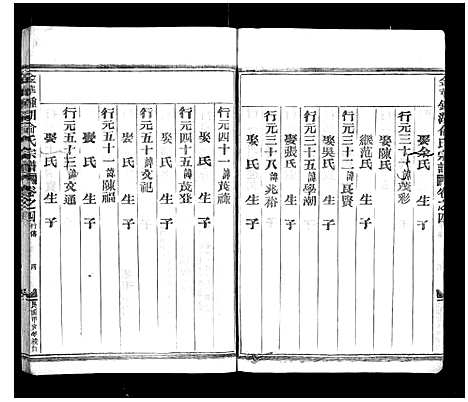 娶余氏 生子
行元三十一 諱茂彩
娶陳氏
繼范氏 生子
行元三十二 諱長賢
娶吳氏 生子
行元三十五 諱學潮
娶張氏 生子
行元三十八 諱兆裕
娶氏 生子
行元四十一 諱茂祿
娶氏 生子
行元四十五 諱茂登
娶氏 生子
行元五十 諱文杞
娶氏 生子
行元五十一 諱陳福
娶氏 生子
行元五十三 諱文通
娶氏 生子
宗譜 卷之四 行傳 四